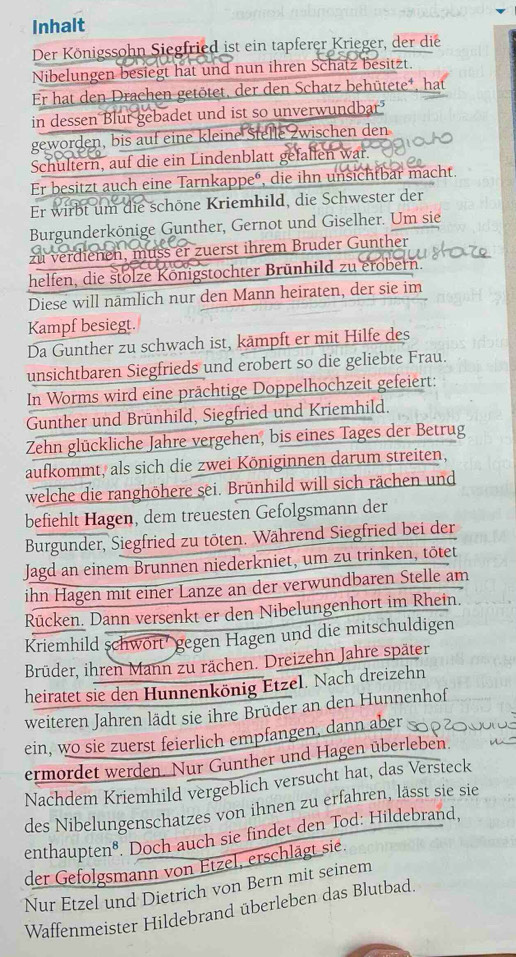 Inhalt
Der Königssohn Siegfried ist ein tapferer Krieger, der die
conquistato tesoro
Nibelungen besiegt hat und nun ihren Schatz besitzt.
Er hat den Drachen getötet, der den Schatz behütete⁴, hat
sangue
in dessen Blut gebadet und ist so unverwundbar⁵
punto
geworden, bis auf eine kleine Stelle zwischen den
spalle si era poggiato
Schultern, auf die ein Lindenblatt gefallen war.
invisibile
Er besitzt auch eine Tarnkappe⁶, die ihn unsichtbar macht.
Er wirbt um die schöne Kriemhild, die Schwester der
Burgunderkönige Gunther, Gernot und Giselher. Um sie
zu verdienen, muss er zuerst ihrem Bruder Gunther
conquistare
helfen, die stolze Königstochter Brünhild zu erobern.
Diese will nämlich nur den Mann heiraten, der sie im
Kampf besiegt.
Da Gunther zu schwach ist, kämpft er mit Hilfe des
unsichtbaren Siegfrieds und erobert so die geliebte Frau.
In Worms wird eine prächtige Doppelhochzeit gefeiert:
Gunther und Brünhild, Siegfried und Kriemhild.
Zehn glückliche Jahre vergehen, bis eines Tages der Betrug
aufkommt, als sich die zwei Königinnen darum streiten,
welche die ranghöhere sei. Brünhild will sich rächen und
befiehlt Hagen, dem treuesten Gefolgsmann der
Burgunder, Siegfried zu töten. Während Siegfried bei der
Jagd an einem Brunnen niederkniet, um zu trinken, tötet
ihn Hagen mit einer Lanze an der verwundbaren Stelle am
Rücken. Dann versenkt er den Nibelungenhort im Rhein.
Kriemhild schwört⁷ gegen Hagen und die mitschuldigen
Brüder, ihren Mann zu rächen. Dreizehn Jahre später
heiratet sie den Hunnenkönig Etzel. Nach dreizehn
weiteren Jahren lädt sie ihre Brüder an den Hunnenhof
ein, wo sie zuerst feierlich empfangen, dann aber
ermordet werden. Nur Gunther und Hagen überleben.
Nachdem Kriemhild vergeblich versucht hat, das Versteck
des Nibelungenschatzes von ihnen zu erfahren, lässt sie sie
enthaupten⁸. Doch auch sie findet den Tod: Hildebrand,
der Gefolgsmann von Etzel, erschlägt sie.
Nur Etzel und Dietrich von Bern mit seinem
Waffenmeister Hildebrand überleben das Blutbad.